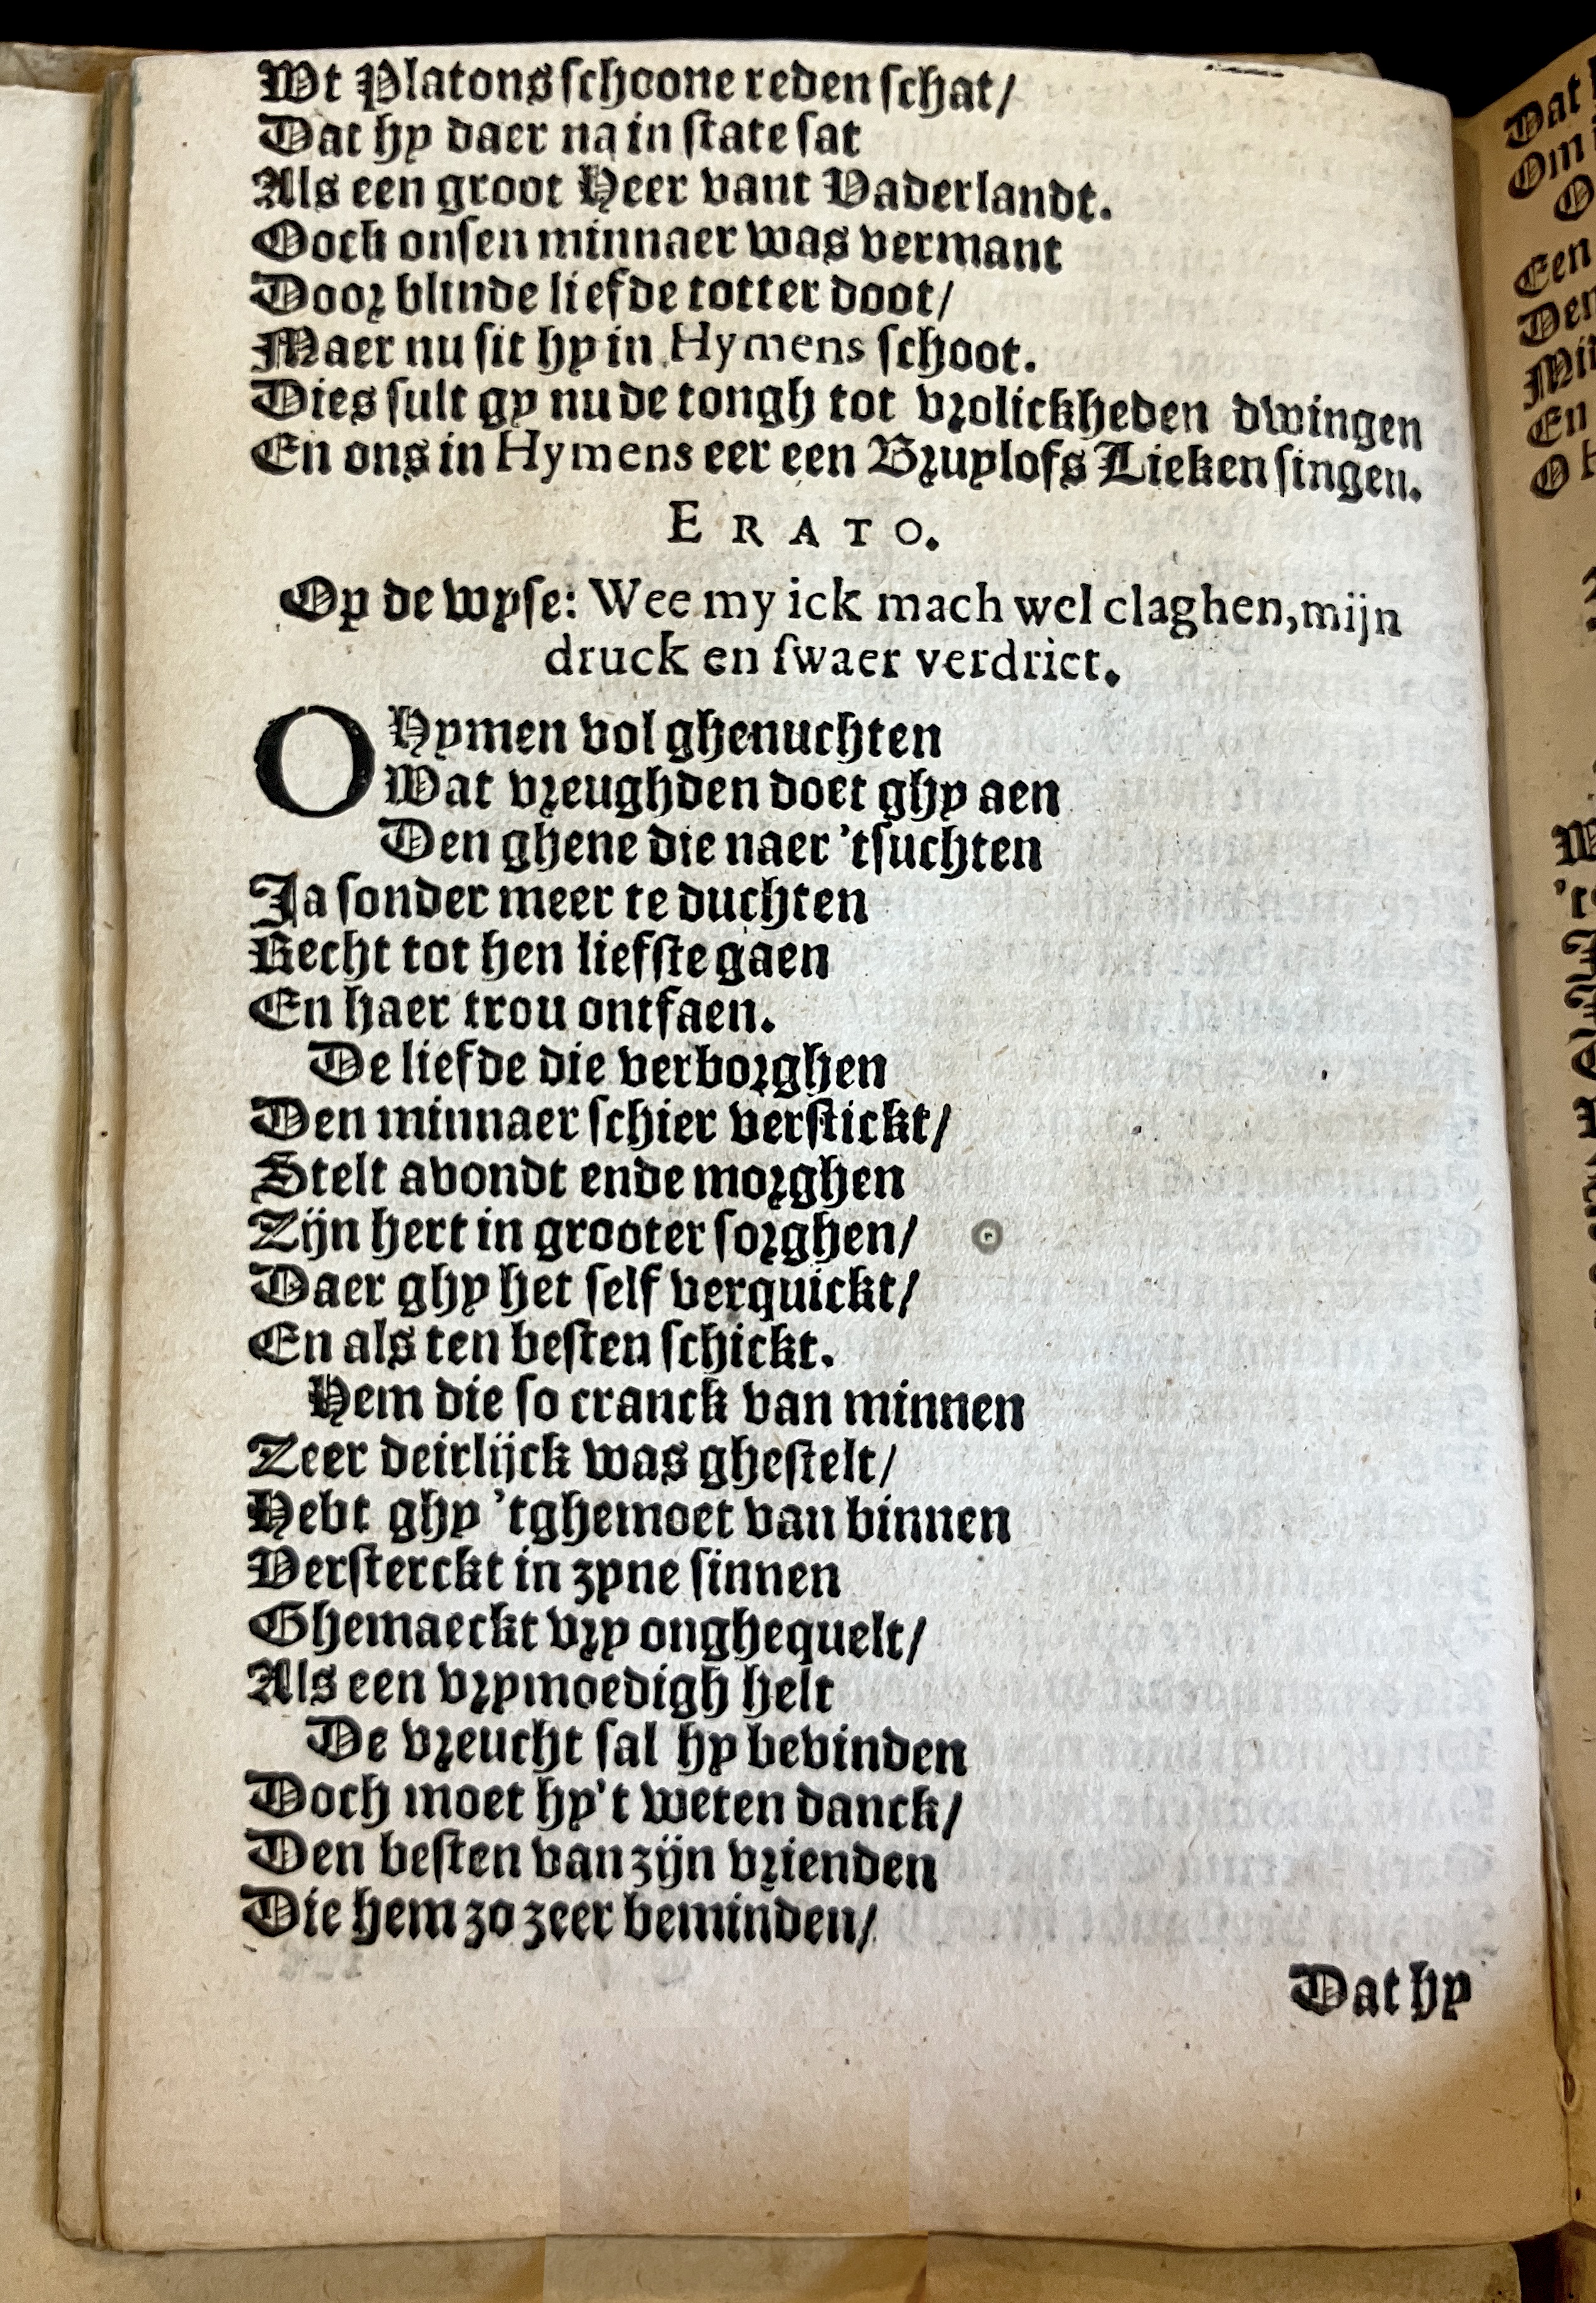 Wt Platons schoone reden schat/
Dat hy daer na in state sat
Als een groot Heer vant Vaderlandt.
Oock onsen minnaer was vermant
Door blinde liefde totter doot/
Maer nu sit hy in Hymens schoot.
Dies sult gy nu de tongh tot vrolickheden dwingen
En ons in Hymens eer een Bruylofs Lieken singen.
ERATO.
Op de wyse: Wee my ick mach wel claghen, mijn
druck en swaer verdriet.
O Hymen vol ghenuchten
Wat vreughden doet ghy aen
Den ghene die naer 'tsuchten
Ja sonder meer te duchten
Recht tot hen liefste gaen
En haer trou ontfaen.
De liefde die verborghen
Den minnaer schier verstickt/
Stelt avondt ende morghen
Zijn hert in grooter sorghen/
Daer ghy het self verquickt/
En als ten besten schickt.
Hem die so cranck van minnen
Zeer deirlijck was ghestelt/
Hebt ghy 'tghemoet van binnen
Versterckt in zyne sinnen
Ghemaeckt vry onghequelt/
Als een vrymoedigh helt
De vreucht sal hy bevinden
Doch moet hy't weten danck/
Den besten van zijn vrienden
Die hem zo zeer beminden/
Dat hy
Dat
Een
En